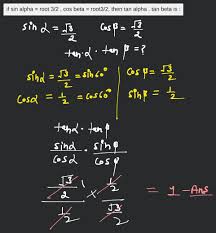 if sin alpha = root 3/2 , cos beta = root3/2, then tan alpha . tan beta is :
sin α = √3/2 cos β = √3/2
tan α · tan β = ?
sin α = √3/2 = sin 60° cos β = √3/2
cos α = 1/2 = cos 60° sin β = 1/2
tan α · tan β
sin α / cos α · sin β / cos β
√3/2 / 1/2 × 1/2 / √3/2 = 1 - Ans